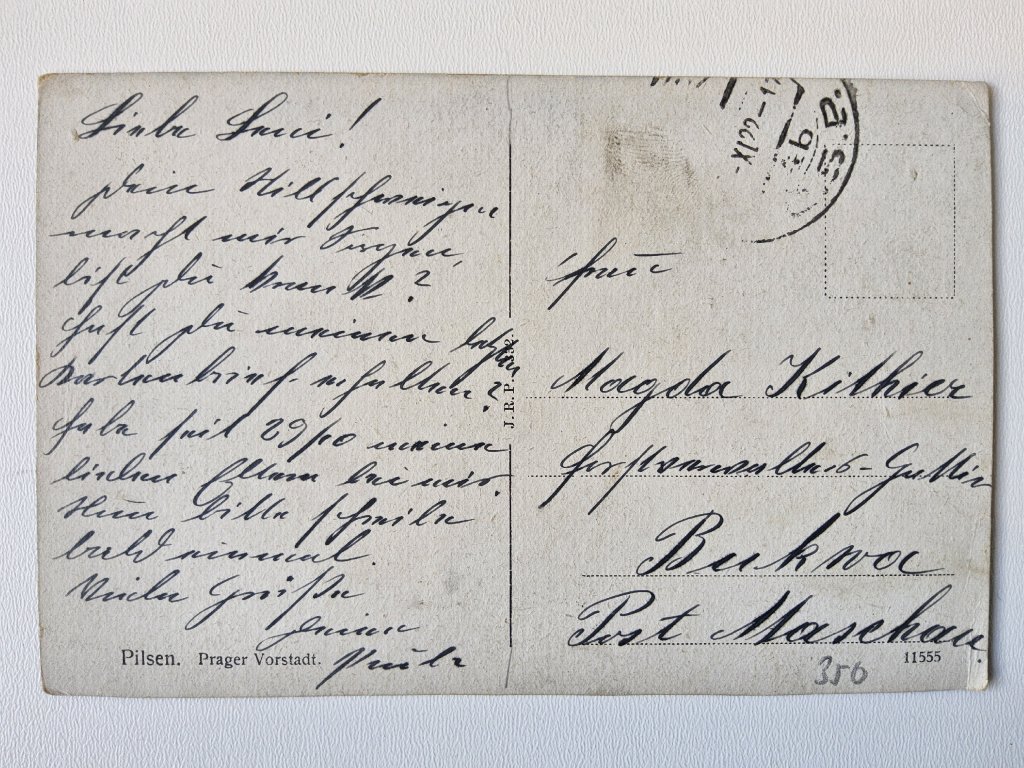 Liebe Leni!
Dein Stillschweigen
macht mir Sorgen,
bist Du krank?
Hast Du meinen letzten
Kartenbrief erhalten?
Habe seit 29/10 meine
lieben Eltern bei mir.
Nun bitte schreibe
bald einmal.
Viele Grüße
Deine
Pilsen. Prager Vorstadt.
J. R. P.
XI 22-1
b
S.P.
Frau
Magda Kithier
Forstverwalters-Gattin
Bukwa
Post Maschau.
11555
356